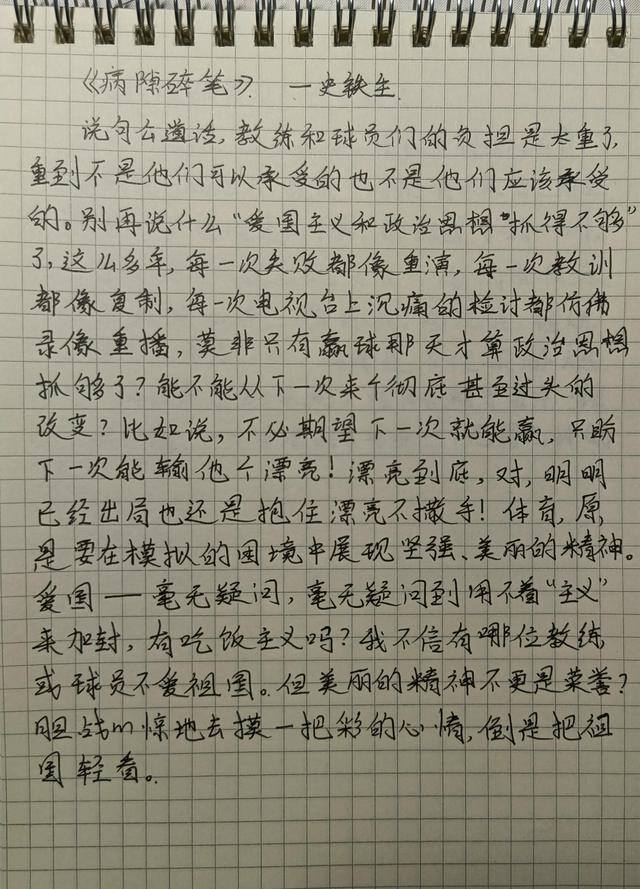 《病隙碎笔》 —史铁生
说句公道话,教练和球员们的负担是太重了,
重到不是他们可以承受的也不是他们应该承受
的。别再说什么"爱国主义和政治思想"抓得不够"
了,这么多年,每一次失败都像重演,每一次教训
都像复制,每一次电视台上沉痛的检讨都仿拂
录像重播,莫非只有赢球那天才算政治思想
抓够了?能不能从下一次来个彻底甚至过头的
改变?比如说,不必期望下一次就能赢,只盼
下一次能输他个漂亮!漂亮到底,对,明明
已经出局也还是抱住漂亮不撒手!体育,原
是要在模拟的困境中展现坚强、美丽的精神。
爱国——毫无疑问,毫无疑问到用不着"主义"
来加封,有吃饭主义吗?我不信有哪位教练
或球员不爱祖国。但美丽的精神不更是荣誉?
胆战心惊地去摸一把彩的心情,倒是把祖
国轻看。